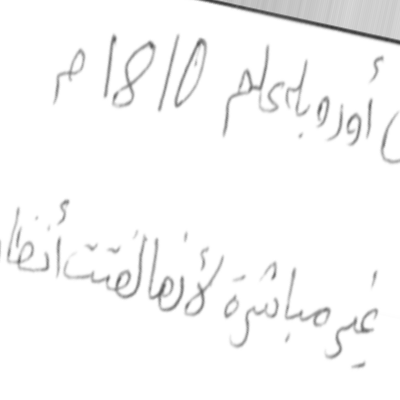 أوروبا عام 1810 م
غير مباشرة لأنها لفتت أنظا